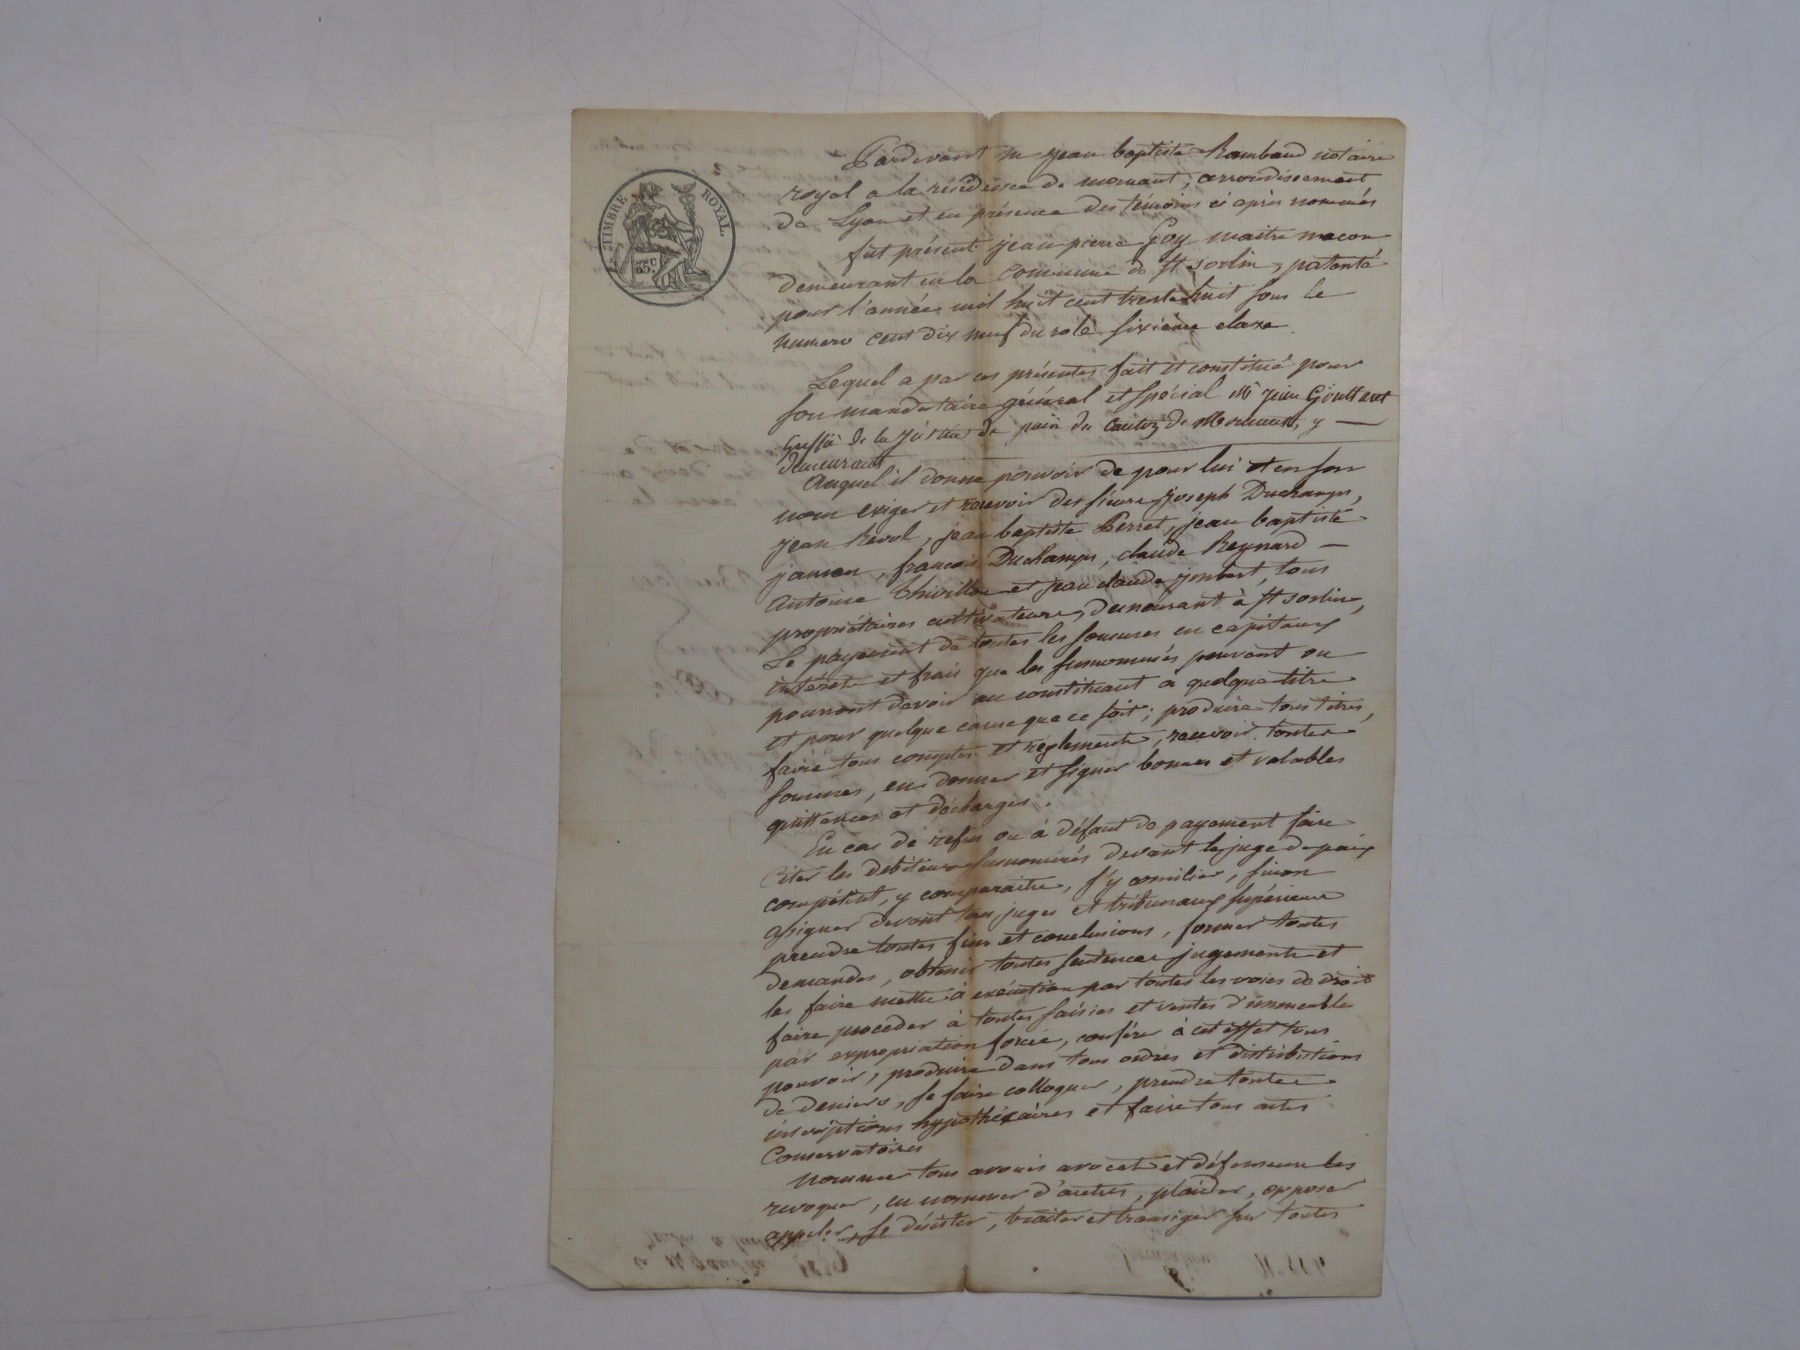 TIMBRE ROYAL.
35.c
Pardevant me jean baptiste Rambaud notaire
royal a la résidence de mornant, arrondissement
de Lyon et en présence des témoins ci après nommés
fut présent jean pierre Goy maitre macon
demeurant en la commune de st sorlin, patenté
pour l'année mil huit cent trente huit sous le
numero cent dix neuf du role sixième classe.
Lequel a par ces présentes fait et constitué pour
son mandataire général et spécial Mr jean
Greffier de la justice de paix du canton de Mornant, y —
demeurant
Auquel il donne pouvoir de pour lui et en son
nom exiger et recevoir des sieurs joseph Duchamps,
jean Revol, jean baptiste Perret, jean baptiste
janson, francois Duchamps, claude Reynard —
antoine Thivillon et jean claude jombert, tous
propriétaires cultivateurs, demeurant à st sorlin,
Le payement de toutes les sommes en capitaux
intérets et frais que les susnommés peuvent ou
pourront devoir au constituant a quelque titre
et pour quelque cause que ce soit; produire tous titres,
faire tous comptes et réglements, recevoir toutes
sommes, en donner et signer bonnes et valables
quittances et décharges.
En cas de refus ou à défaut de payement faire
citer les débiteurs susnommés devant le juge de paix
compétent, y comparaitre, s'y concilier, sinon
assigner devant tous juges et tribunaux supérieurs
prendre toutes fins et conclusions, former toutes
demandes, obtenir toutes sentences jugements et
les faire mettre à exécution par toutes les voies de droit
faire procéder à toutes saisies et ventes d'immeubles
par expropriation forcée, conférer à cet effet tous
pouvoir, produire dans tous ordres et distributions
de deniers, se faire colloquer, prendre toutes
inscriptions hypothécaires et faire tous actes
Conservatoires
Nommer tous avoués avocats et défenseurs les
revoquer, en nommer d'autres, plaider, opposer
appeler, se désister, traiter et transiger sur toutes